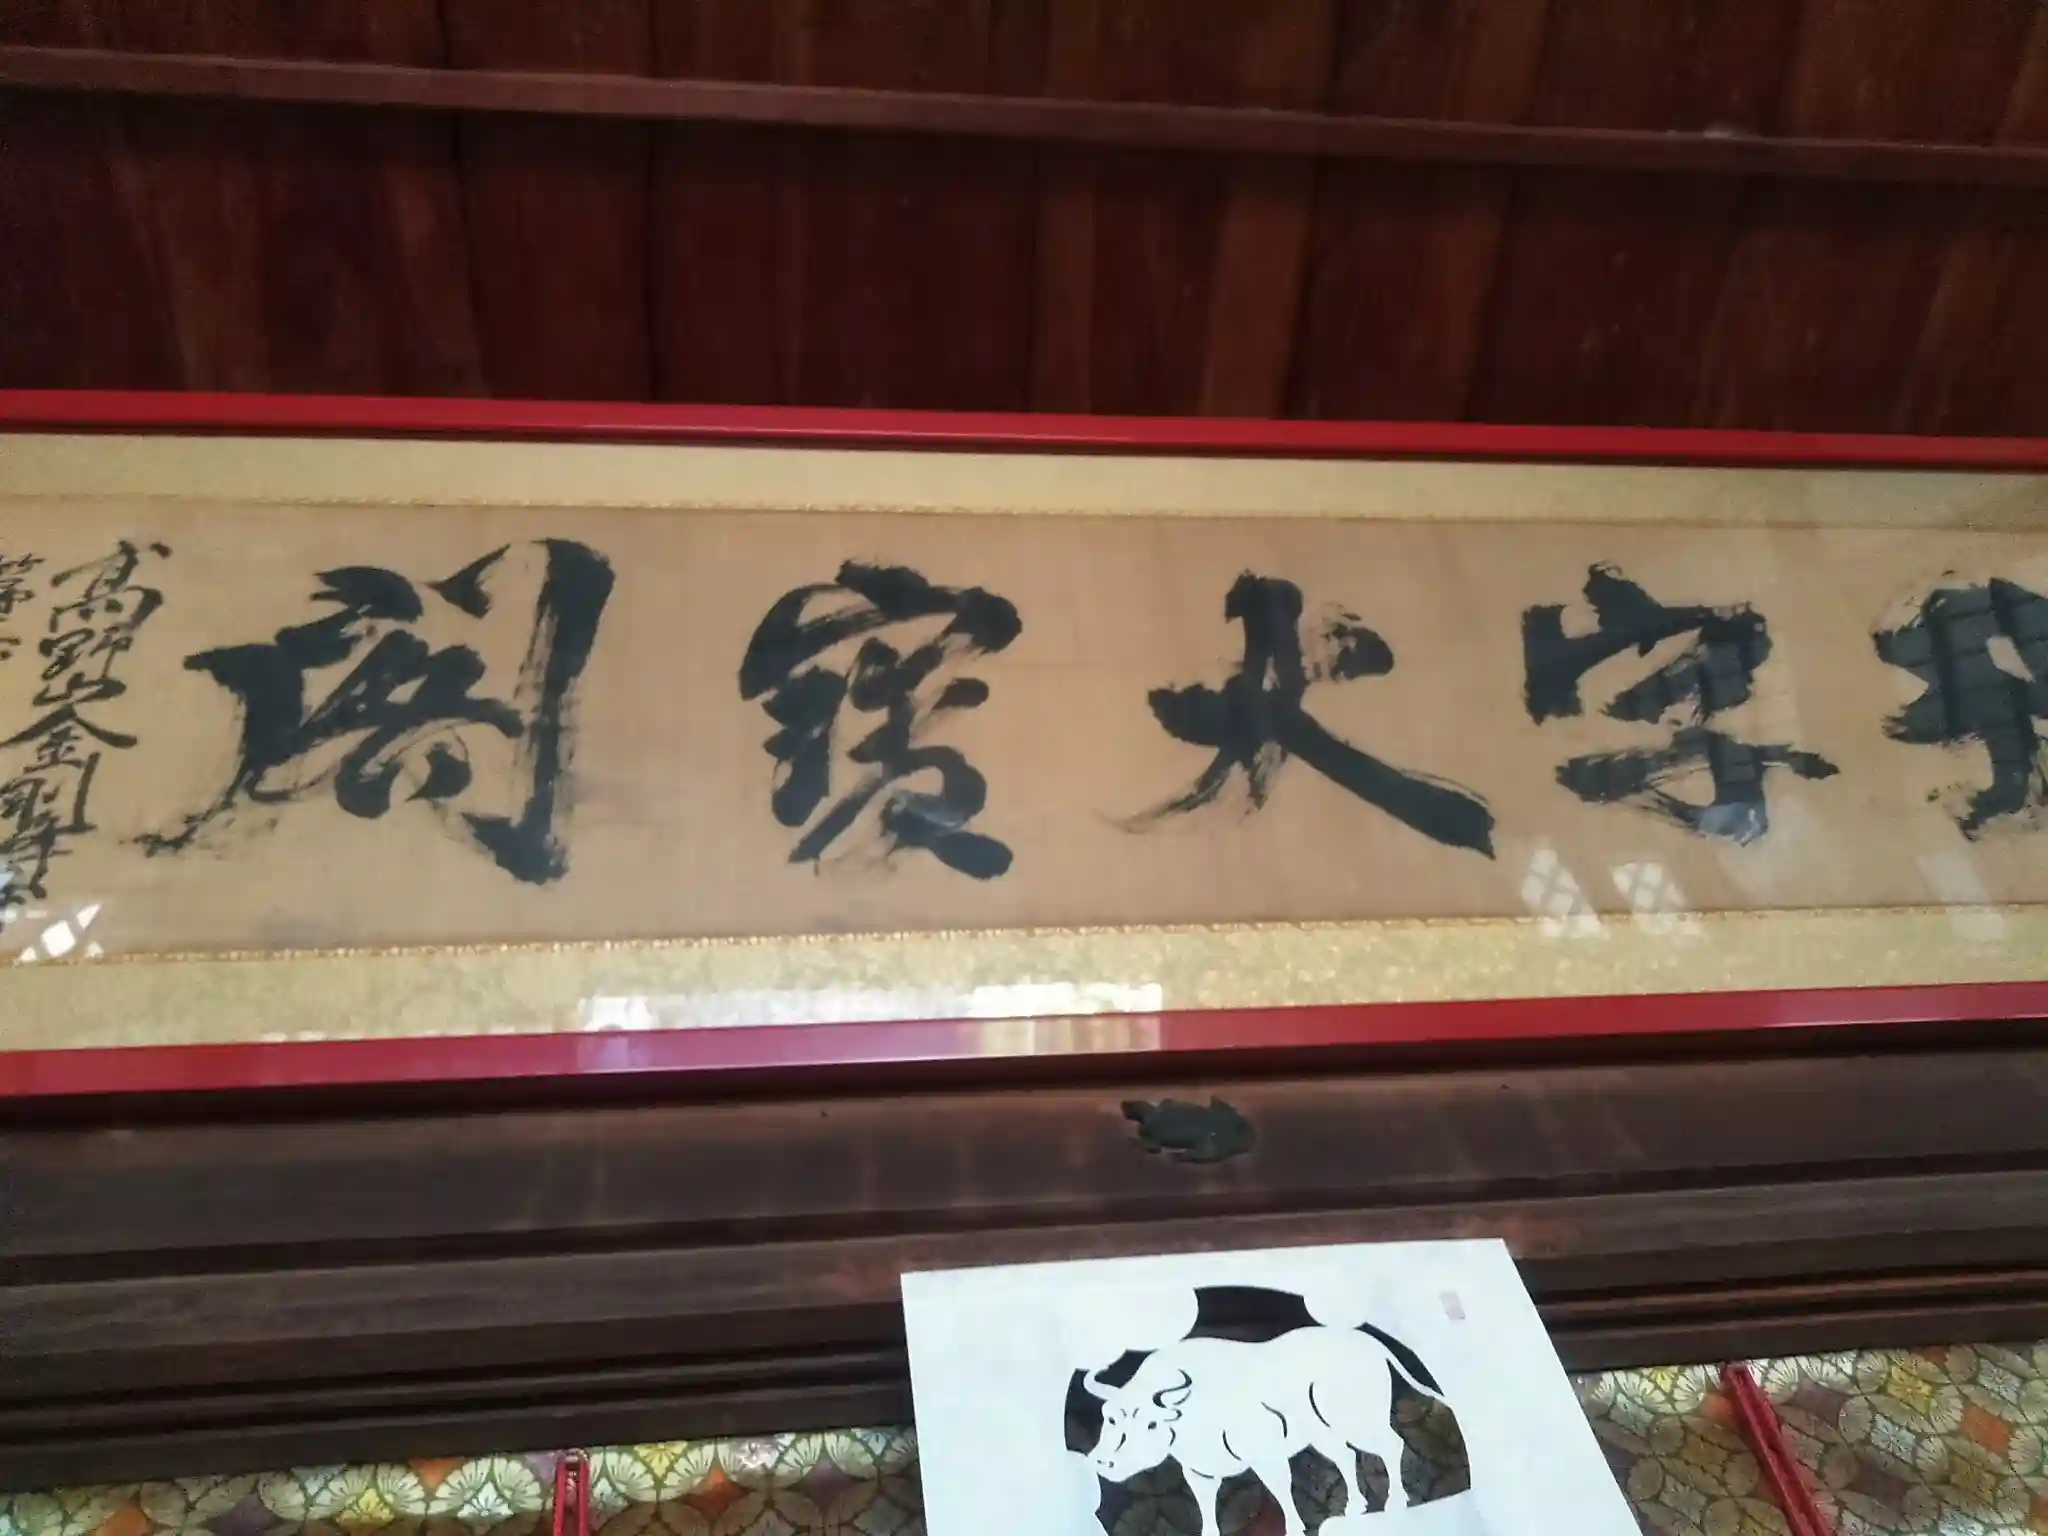 字大寶閣
高野山金剛峯
第